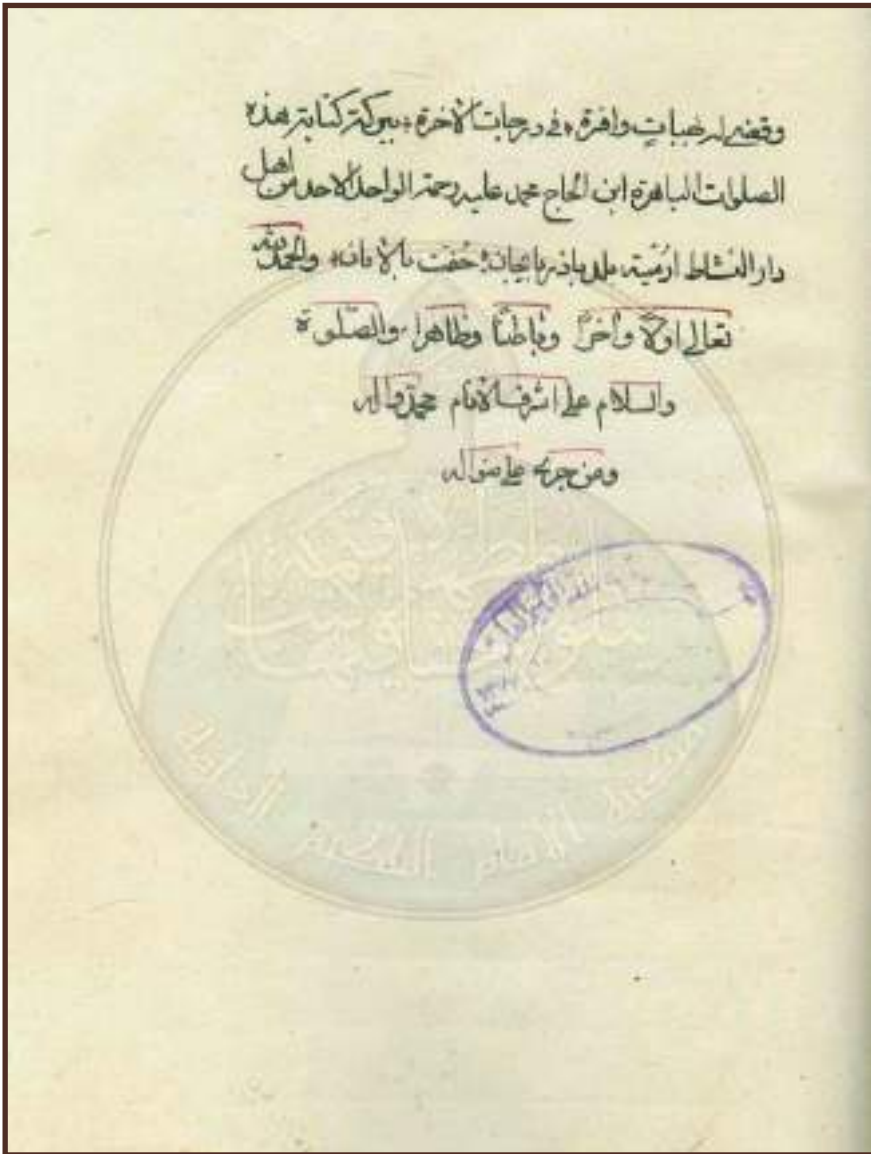 وقضى له بهبات وافرة في درجات الاخرة ببركة كتابة هذه
الصلوات الباهرة ابن الحاج محمد عليه رحمة الواحد الاحد من اهل
دار النشاط ارمية بلد باذربايجان حُفت بالامان والحمد لله
تعالى اولاً واخراً وباطناً وظاهرا والصلوة
والسلام على اشرف الانام محمد واله
ومن جرى على منواله
مكتبة الامام الحكيم العامة